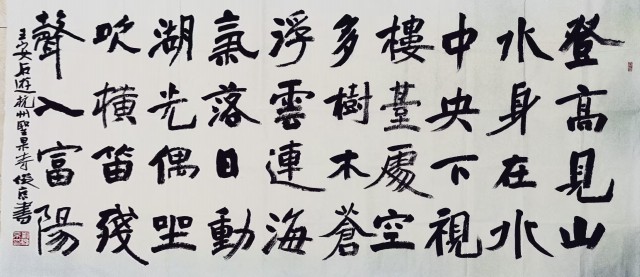 登高見山
水身在水
中央下視
樓臺處空
多樹木蒼
浮雲連海
氣落日動
湖光偶坐
吹橫笛殘
聲入富陽
王安石遊杭州聖果寺俊書